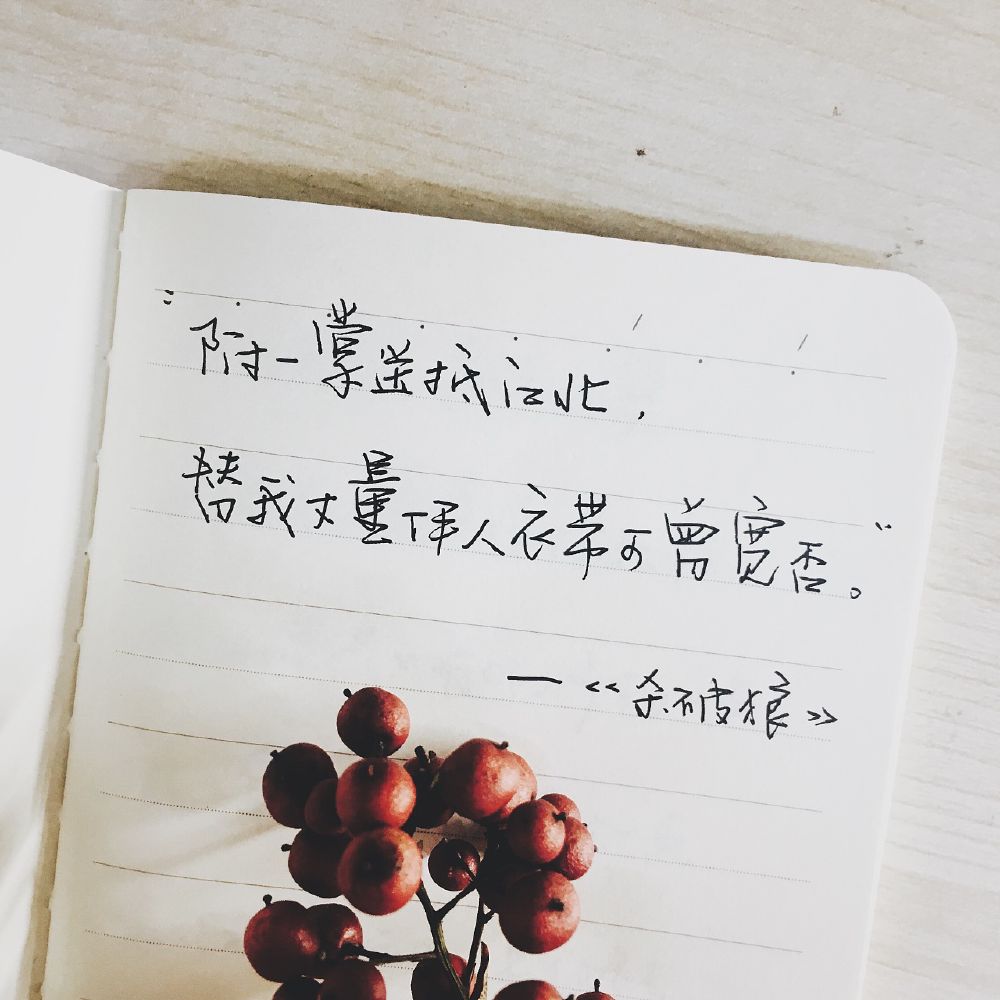 “附一掌送抵江北，
替我丈量伊人衣带可曾宽否。”
——《杀破狼》